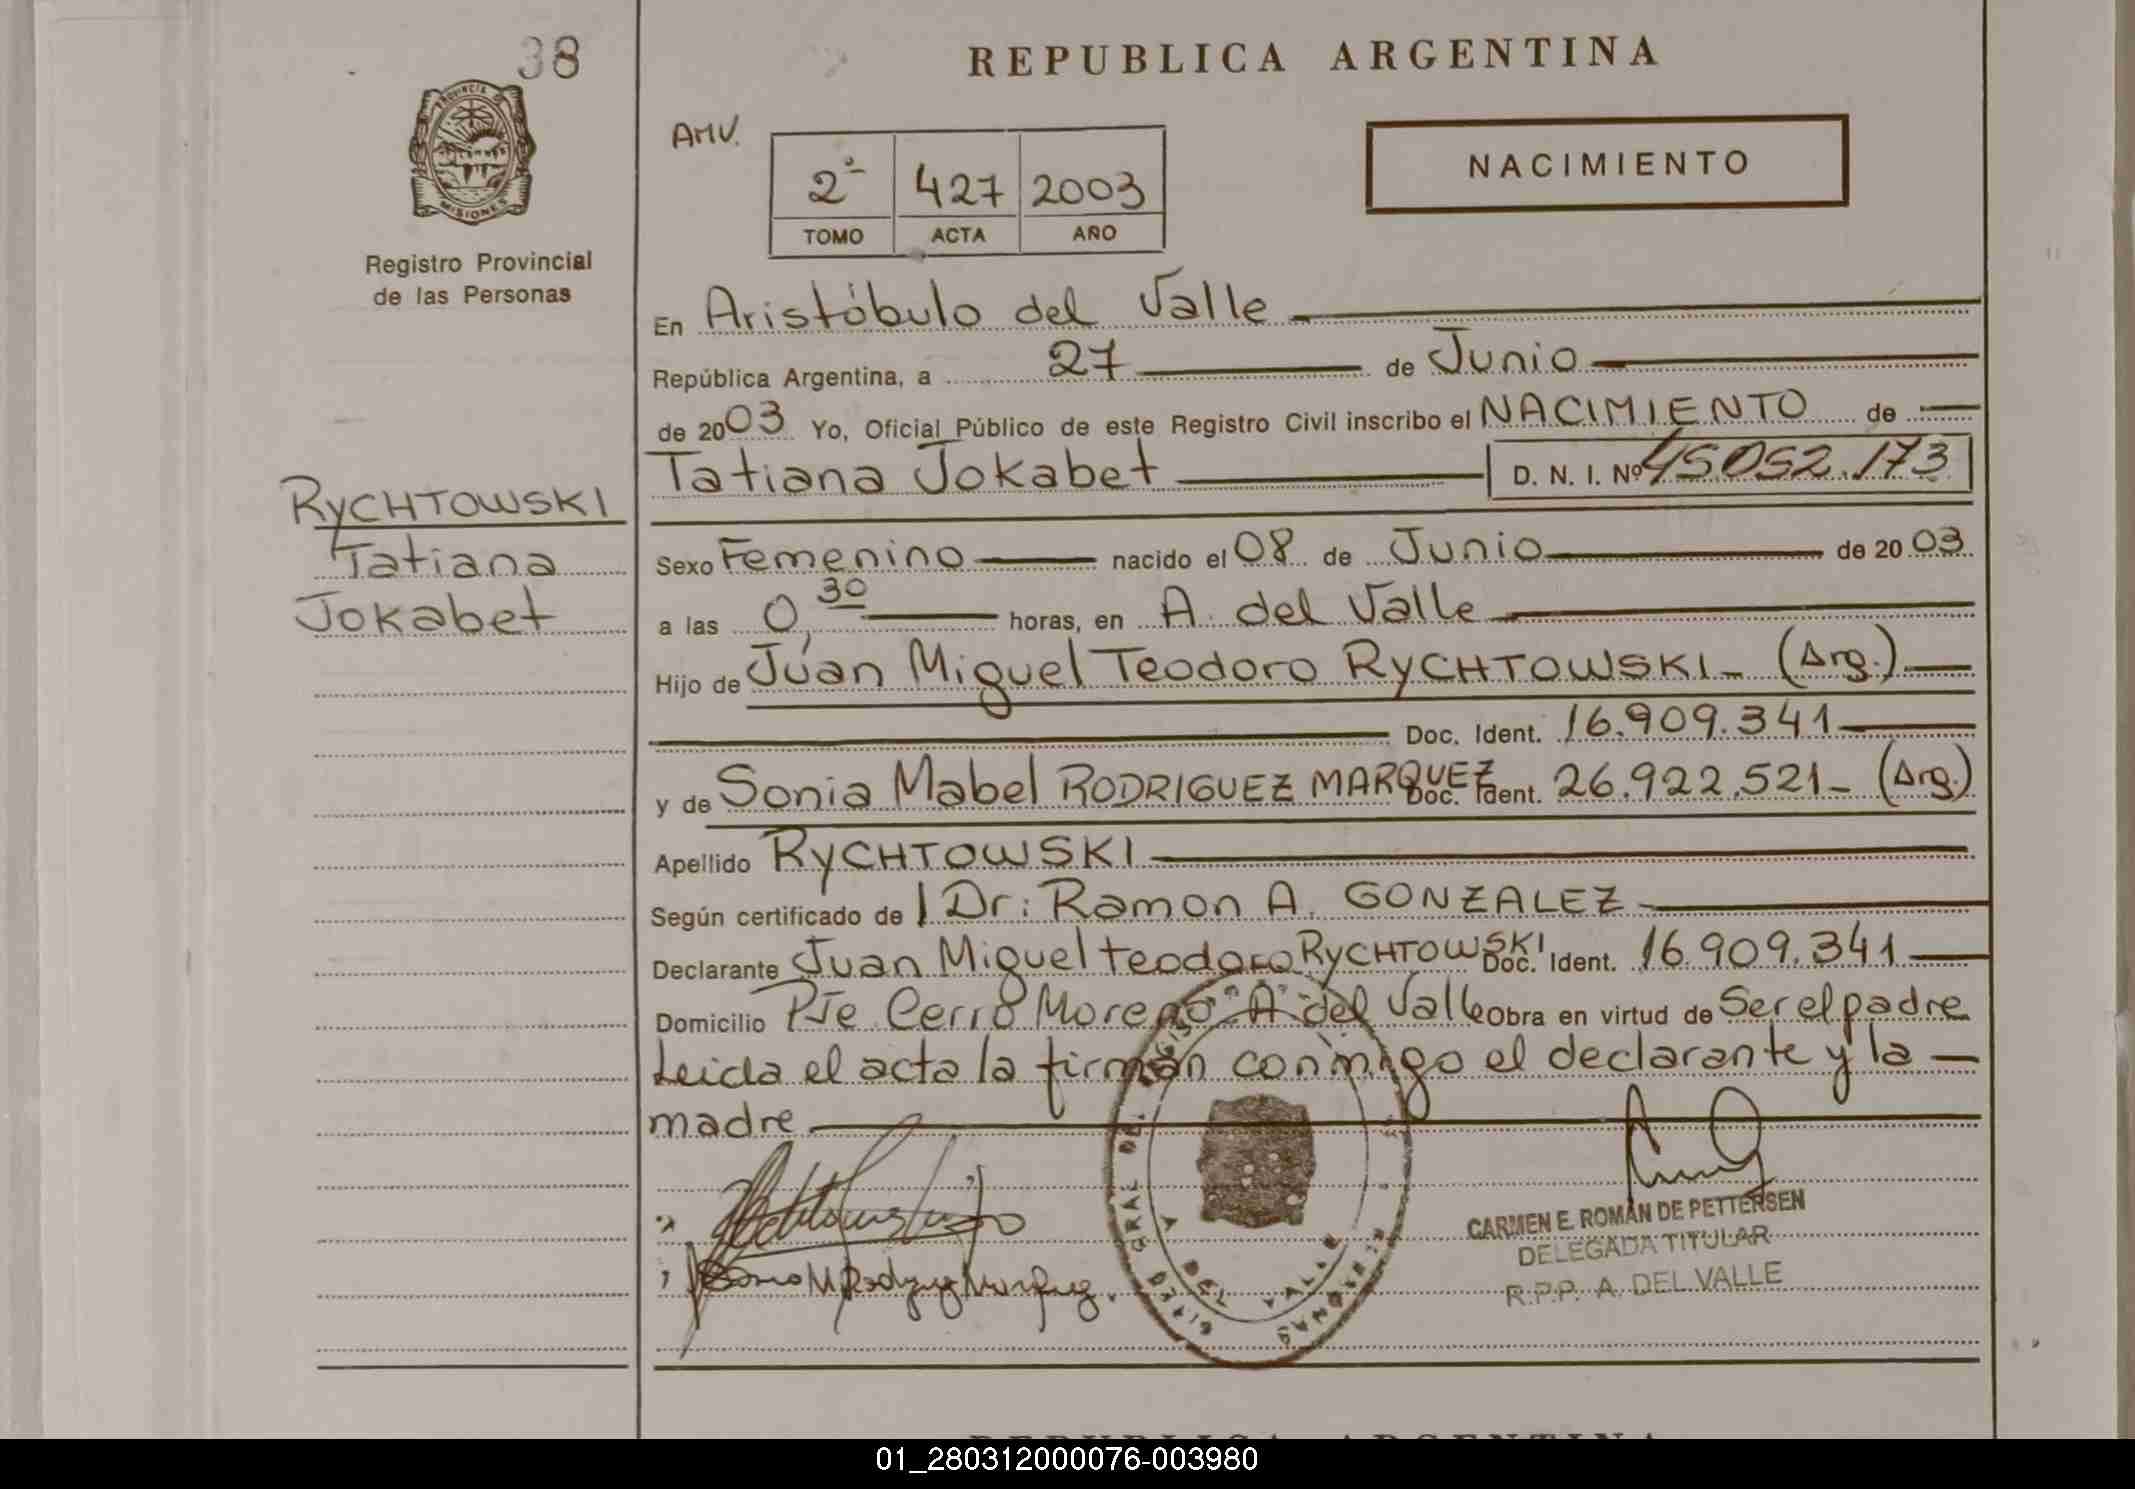 38
PROVINCIA DE
MISIONES
Registro Provincial
de las Personas
RYCHTOWSKI
Tatiana
Jokabet
REPUBLICA ARGENTINA
AMV.
2º 427 2003
TOMO ACTA AÑO
NACIMIENTO
En Aristóbulo del Valle
República Argentina, a 27 de Junio
de 2003 Yo, Oficial Público de este Registro Civil inscribo el NACIMIENTO de
Tatiana Jokabet D. N. I. Nº 45.052.173
Sexo Femenino nacido el 08 de Junio de 2003
a las 0,30 horas, en A. del Valle
Hijo de Juan Miguel Teodoro RYCHTOWSKI - (Arg.)
Doc. Ident. 16.909.341
y de Sonia Mabel RODRIGUEZ MARQUEZ Doc. Ident. 26.922.521 - (Arg.)
Apellido RYCHTOWSKI
Según certificado de l Dr: Ramon A. GONZALEZ
Declarante Juan Miguel teodoro RYCHTOWSKI Doc. Ident. 16.909.341
Domicilio Pje Cerro Moreno A del Valle Obra en virtud de Ser el padre
Leida el acta la firman conmigo el declarante y la
madre
CARMEN E. ROMÁN DE PETTERSEN
DELEGADA TITULAR
R.P.P. A. DEL VALLE
A DEL VALLE
01_280312000076-003980